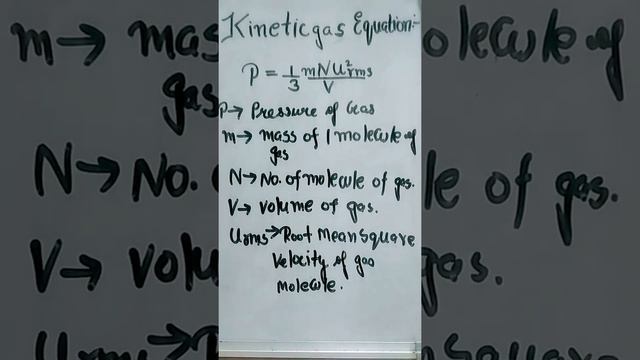 Kinetic gas Equation:-
P = 1/3 mNU²rms/V
P→ Pressure of Gas
m→ mass of 1 molecule of
gas
N→ No. of molecule of gas.
V→ volume of gas.
Urms→ Root Mean Square
Velocity of gas
molecule.